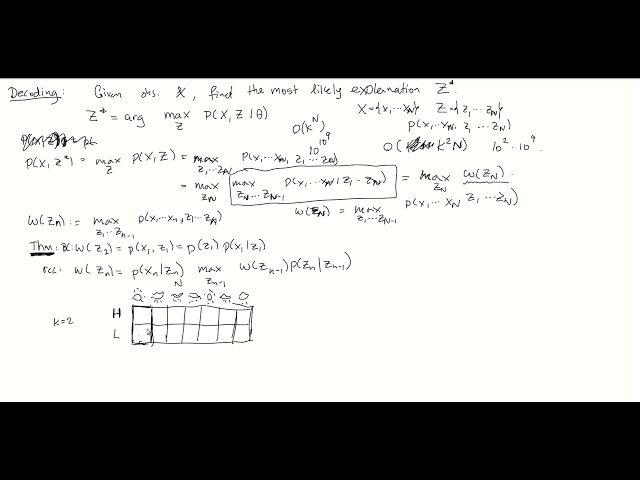 Decoding: Given obs. X, find the most likely explanation Z*
Z* = arg max_Z P(X, Z | θ)
X = {x₁, ⋯ x_N} Z = {z₁ ⋯ z_N}
P(x₁, ⋯ x_N, z₁ ⋯ z_N)
O(K^N)
10^10^9
O( K²N) 10² · 10⁹.
P(X, Z*) = max_Z P(X, Z) = max_{z₁ ⋯ z_N} P(x₁, ⋯ x_N, z₁ ⋯ z_N)
= max_{z_N} max_{z_N ⋯ z_{N-1}} P(x₁, ⋯ x_N, z₁ ⋯ z_N) = max_{z_N} ω(z_N).
ω(z_N) = max_{z₁ ⋯ z_{N-1}} P(x₁, ⋯ x_N z₁, ⋯ z_N)
ω(z_n) := max_{z₁ ⋯ z_{n-1}} P(x₁, ⋯ x_n, z₁ ⋯ z_n)
Thm: BC: ω(z₁) = p(x₁, z₁) = p(z₁) p(x₁|z₁)
rec: ω(z_n) = p(x_n|z_n) max_{z_{n-1}} ω(z_{n-1}) p(z_n|z_{n-1})
N
H
K=2
L